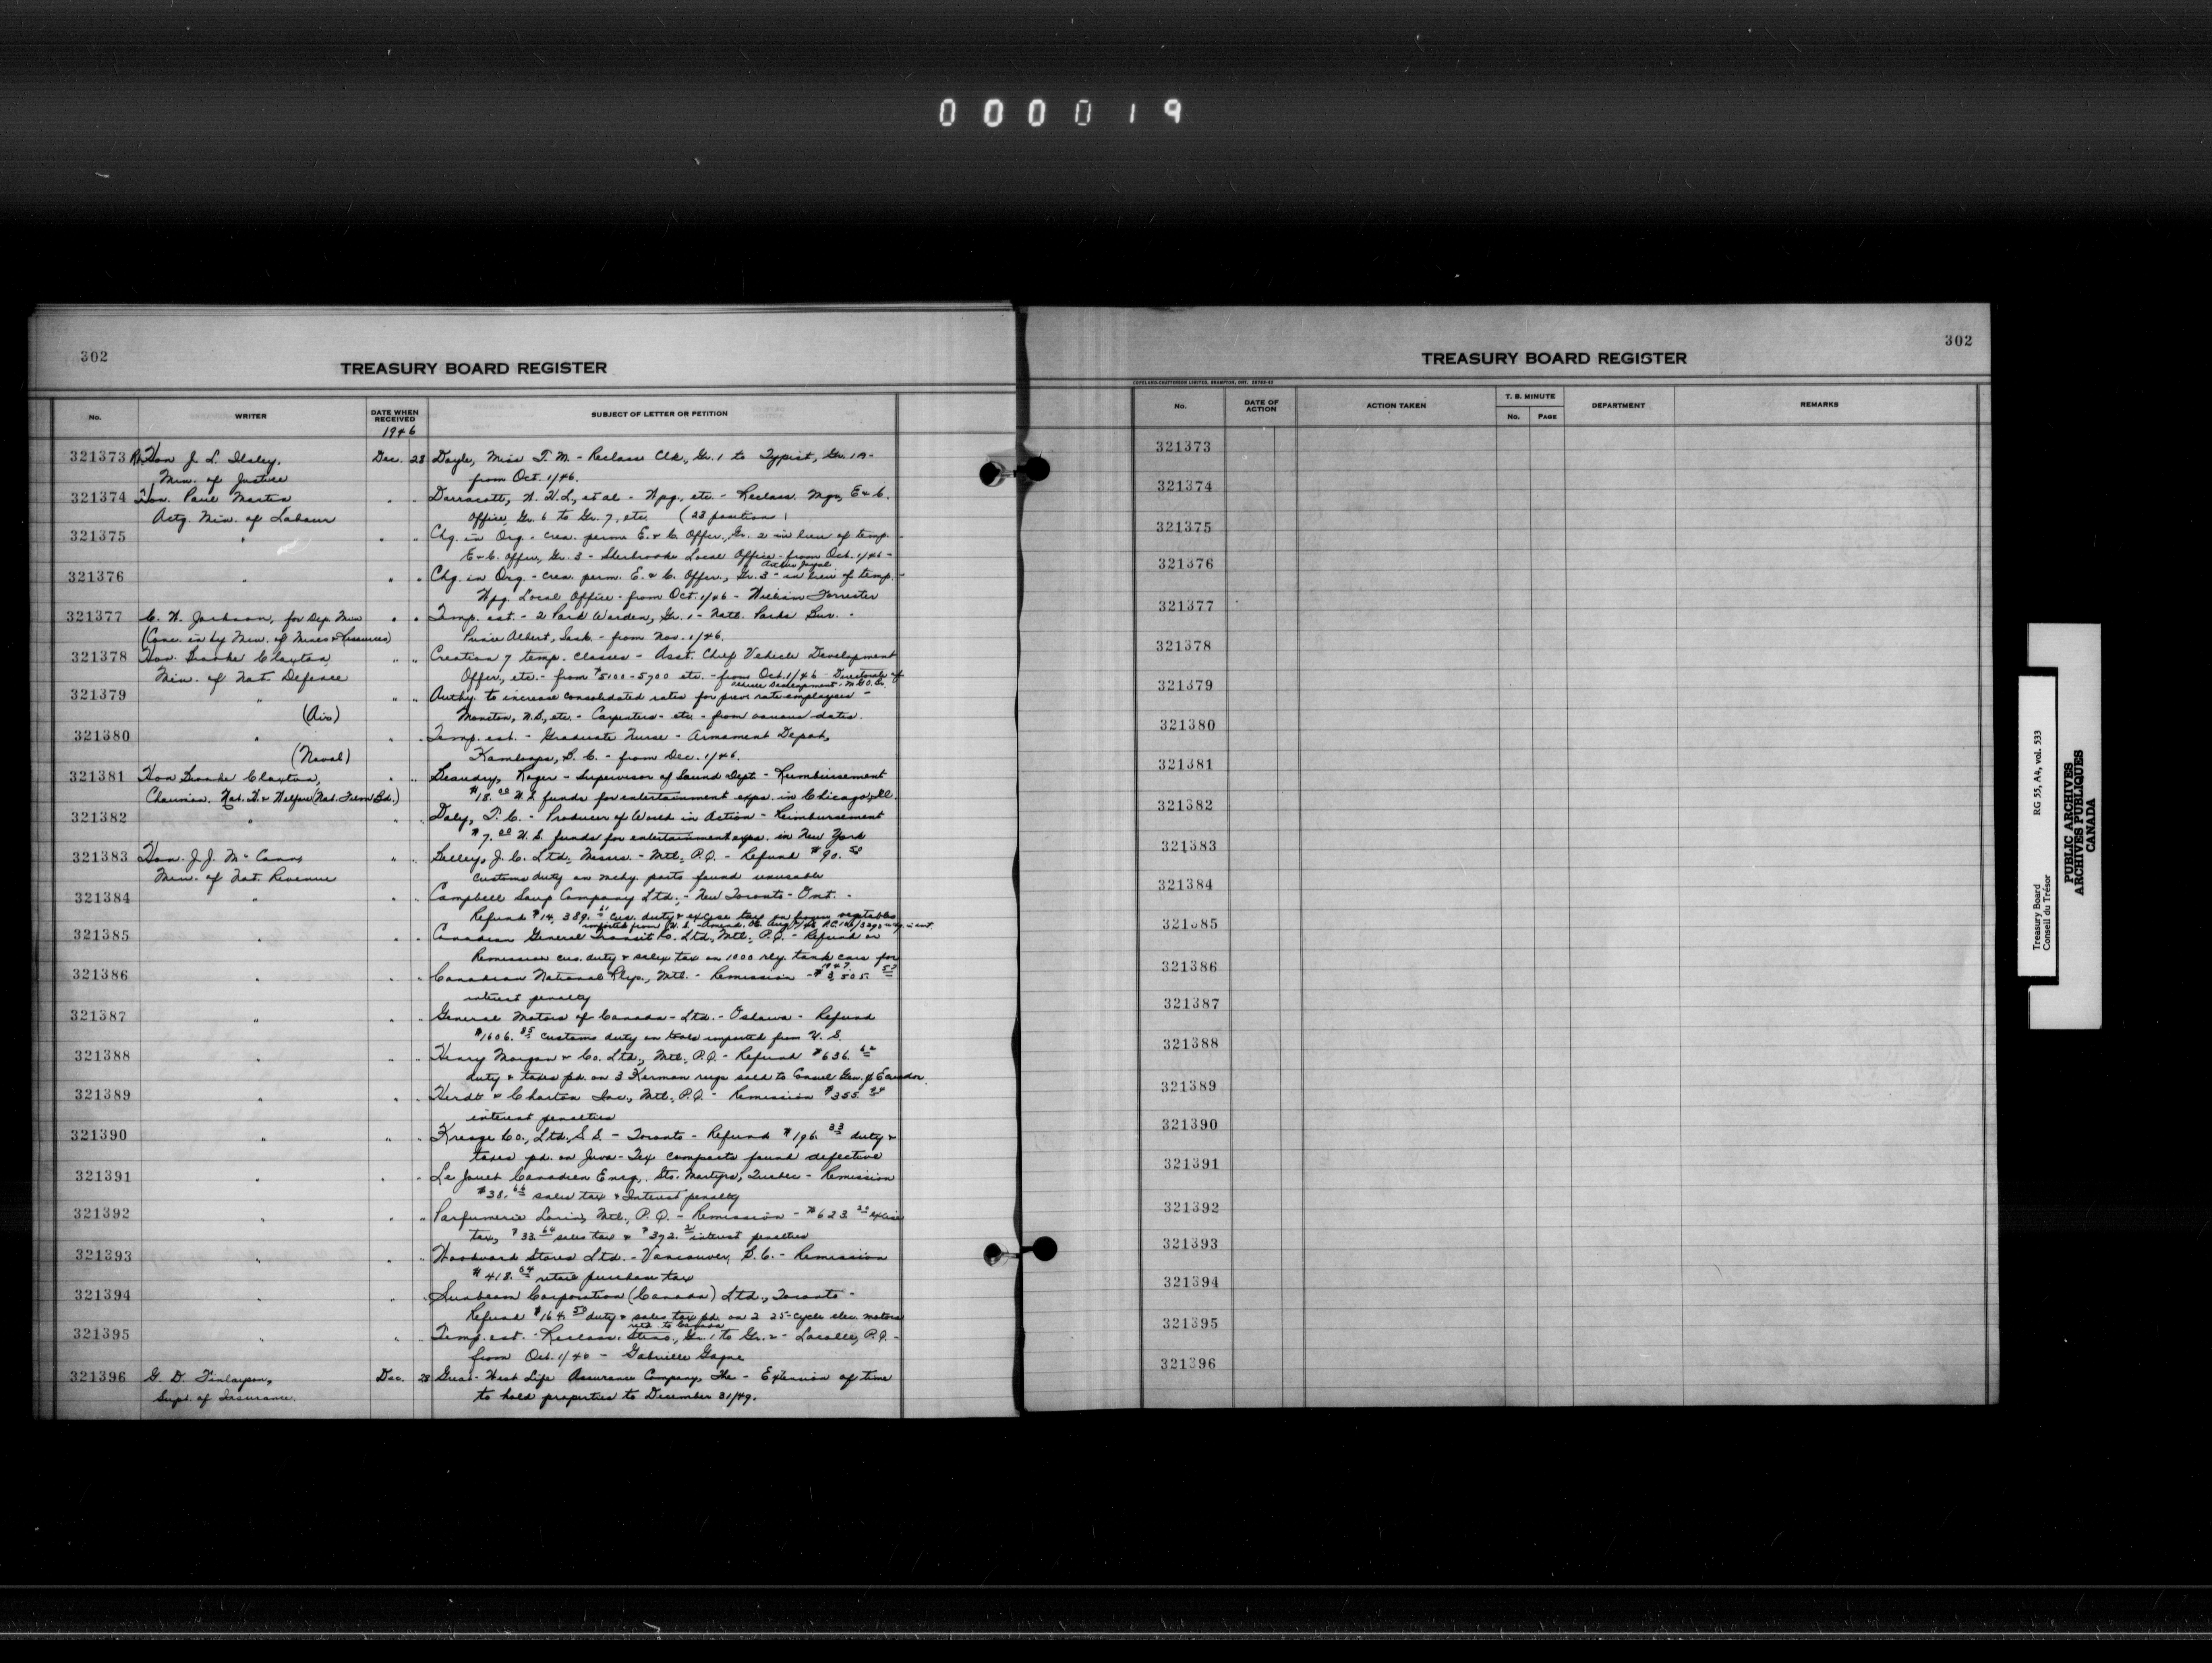 000019
302
TREASURY BOARD REGISTER
No.
WRITER
DATE WHEN RECEIVED
SUBJECT OF LETTER OR PETITION
1946
321373 Rt. Hon J. L. Ilsley, Dec. 28 Doyle, Miss T. M. - Reclass Clk., Gr. 1 to Typist, Gr. 1A -
Min. of Justice from Oct. 1/46.
321374 Hon. Paul Martin " " Darracott, N. H. L., et al - Wpg., etc. - Reclass. Mgr, E & C.
Actg. Min. of Labour Office, Gr. 6 to Gr. 7, etc. (23 positions)
321375 " " " Chg. in Org. - crea. perm. E. & C. Offer., Gr. 2 in lieu of temp. -
E & C. offer, Gr. 3 - Sherbrooke Local Office - from Oct. 1/46 -
321376 " " " Chg. in Org. - crea. perm. E. & C. Offer., Gr. 3 - in lieu of temp. -
Wpg. Local Office - from Oct. 1/46 - William Forrester
321377 C. W. Jackson, for Dep. Min " " Temp. est. - 2 Park Warden, Gr. 1 - Natl. Parks Bur. -
(Conc. in by Min. of Mines & Resources) Prince Albert, Sask. - from Nov. 1/46.
321378 Hon. Brooke Claxton, " " Creation 7 temp. classes - Asst. Chief Vehicle Development
Min. of Nat. Defence Offer., etc. - from $5100 - 5700 etc. - from Oct. 1/46 - Directorate of
321379 " " " Authy. to increase consolidated rates for prev. rate employees -
(Air) Moncton, N.B., etc. - Carpenters - etc. - from various dates.
321380 " " " Temp. est. - Graduate Nurse - Armament Depot,
(Naval) Kamloops, B. C. - from Dec. 1/46.
321381 Hon Brooke Claxton, " " Beaudry, Roger - Supervisor of Sound Dept - Reimbursement
Chairman. Nat. H. & Welfare (Nat. Film Bd.) $18.00 U.S. funds for entertainment exps. in Chicago, Ill.
321382 " " " Daly, T. C. - Producer of World in Action - Reimbursement
$7.00 U. S. funds for entertainment exps. in New York
321383 Hon. J. J. McCann " " Lelley, J. C. Ltd., Messrs. - Mtl., P.Q. - Refund $90.50
Min. of Nat. Revenue customs duty on mchy. parts found unusable
321384 " " " Campbell Soup Company Ltd., - New Toronto - Ont. -
Refund $14,389.61 cus. duty & excise tax on frozen vegetables
321385 " " " Canadian General Transit Co. Ltd., Mtl., P.Q. - Refund or
Remission cus. duty & sales tax on 1000 rly. tank cars for
321386 " " " Canadian National Rlys., Mtl. - Remission - $3,505.
interest penalty
321387 " " " General Motors of Canada - Ltd. - Oshawa - Refund
$1606.85 customs duty on tools imported from U. S.
321388 " " " Henry Morgan & Co. Ltd., Mtl., P.Q. - Refund $636.62
duty & taxes pd. on 3 Kerman rugs sold to Consul Gen. of Ecuador.
321389 " " " Herdt & Charton Inc., Mtl., P.Q. - Remission $355.
interest penalties
321390 " " " Kresge Co., Ltd., S.S. - Toronto - Refund $196.33 duty &
taxes pd. on compacts found defective
321391 " " " Le Jouet Canadien Enrg., Sts. Martyrs, Quebec - Remission
$38.66 sales tax & Interest penalty
321392 " " " Parfumerie Lorin, Mtl., P. Q. - Remission - $623. excise
tax, $33.64 sales tax & $392. interest penalties
321393 " " " Woodward Stores Ltd. - Vancouver, B. C. - Remission
$418.64 retail purchase tax
321394 " " " Sunbeam Corporation (Canada) Ltd., Toronto -
Refund $164.50 duty & sales tax pd. on 2 25-cycle elec. motors
retd. to Canada
321395 " " " Temp. est. - Reclass. Steno., Gr. 1 to Gr. 2 - Lacolle, P.Q. -
from Oct. 1/40 - Gabrielle Gagne
321396 G. D. Finlayson, Dec. 28 Great-West Life Assurance Company, The - Extension of time
Supt. of Insurance. to hold properties to December 31/49.
302
TREASURY BOARD REGISTER
COPELAND-CHATTERSON LIMITED, BRAMPTON, ONT.
No.
DATE OF ACTION
ACTION TAKEN
T. B. MINUTE
No.
PAGE
DEPARTMENT
REMARKS
321373
321374
321375
321376
321377
321378
321379
321380
321381
321382
321383
321384
321385
321386
321387
321388
321389
321390
321391
321392
321393
321394
321395
321396
Treasury Board RG 55, A4, vol. 533
Conseil du Trésor
PUBLIC ARCHIVES
ARCHIVES PUBLIQUES
CANADA